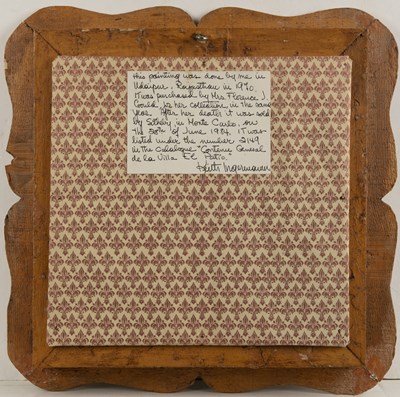 This painting was done by me in
Udaipur, Rajasthan in 1970.
It was purchased by Mrs Florence J
Gould for her collection, in the same
year. After her death it was sold
by Sotheby in Monte Carlo, on
the 30th of June 1984. It was
listed under the number 2149
in the Catalogue "Contenu General
de la Villa El Patio.